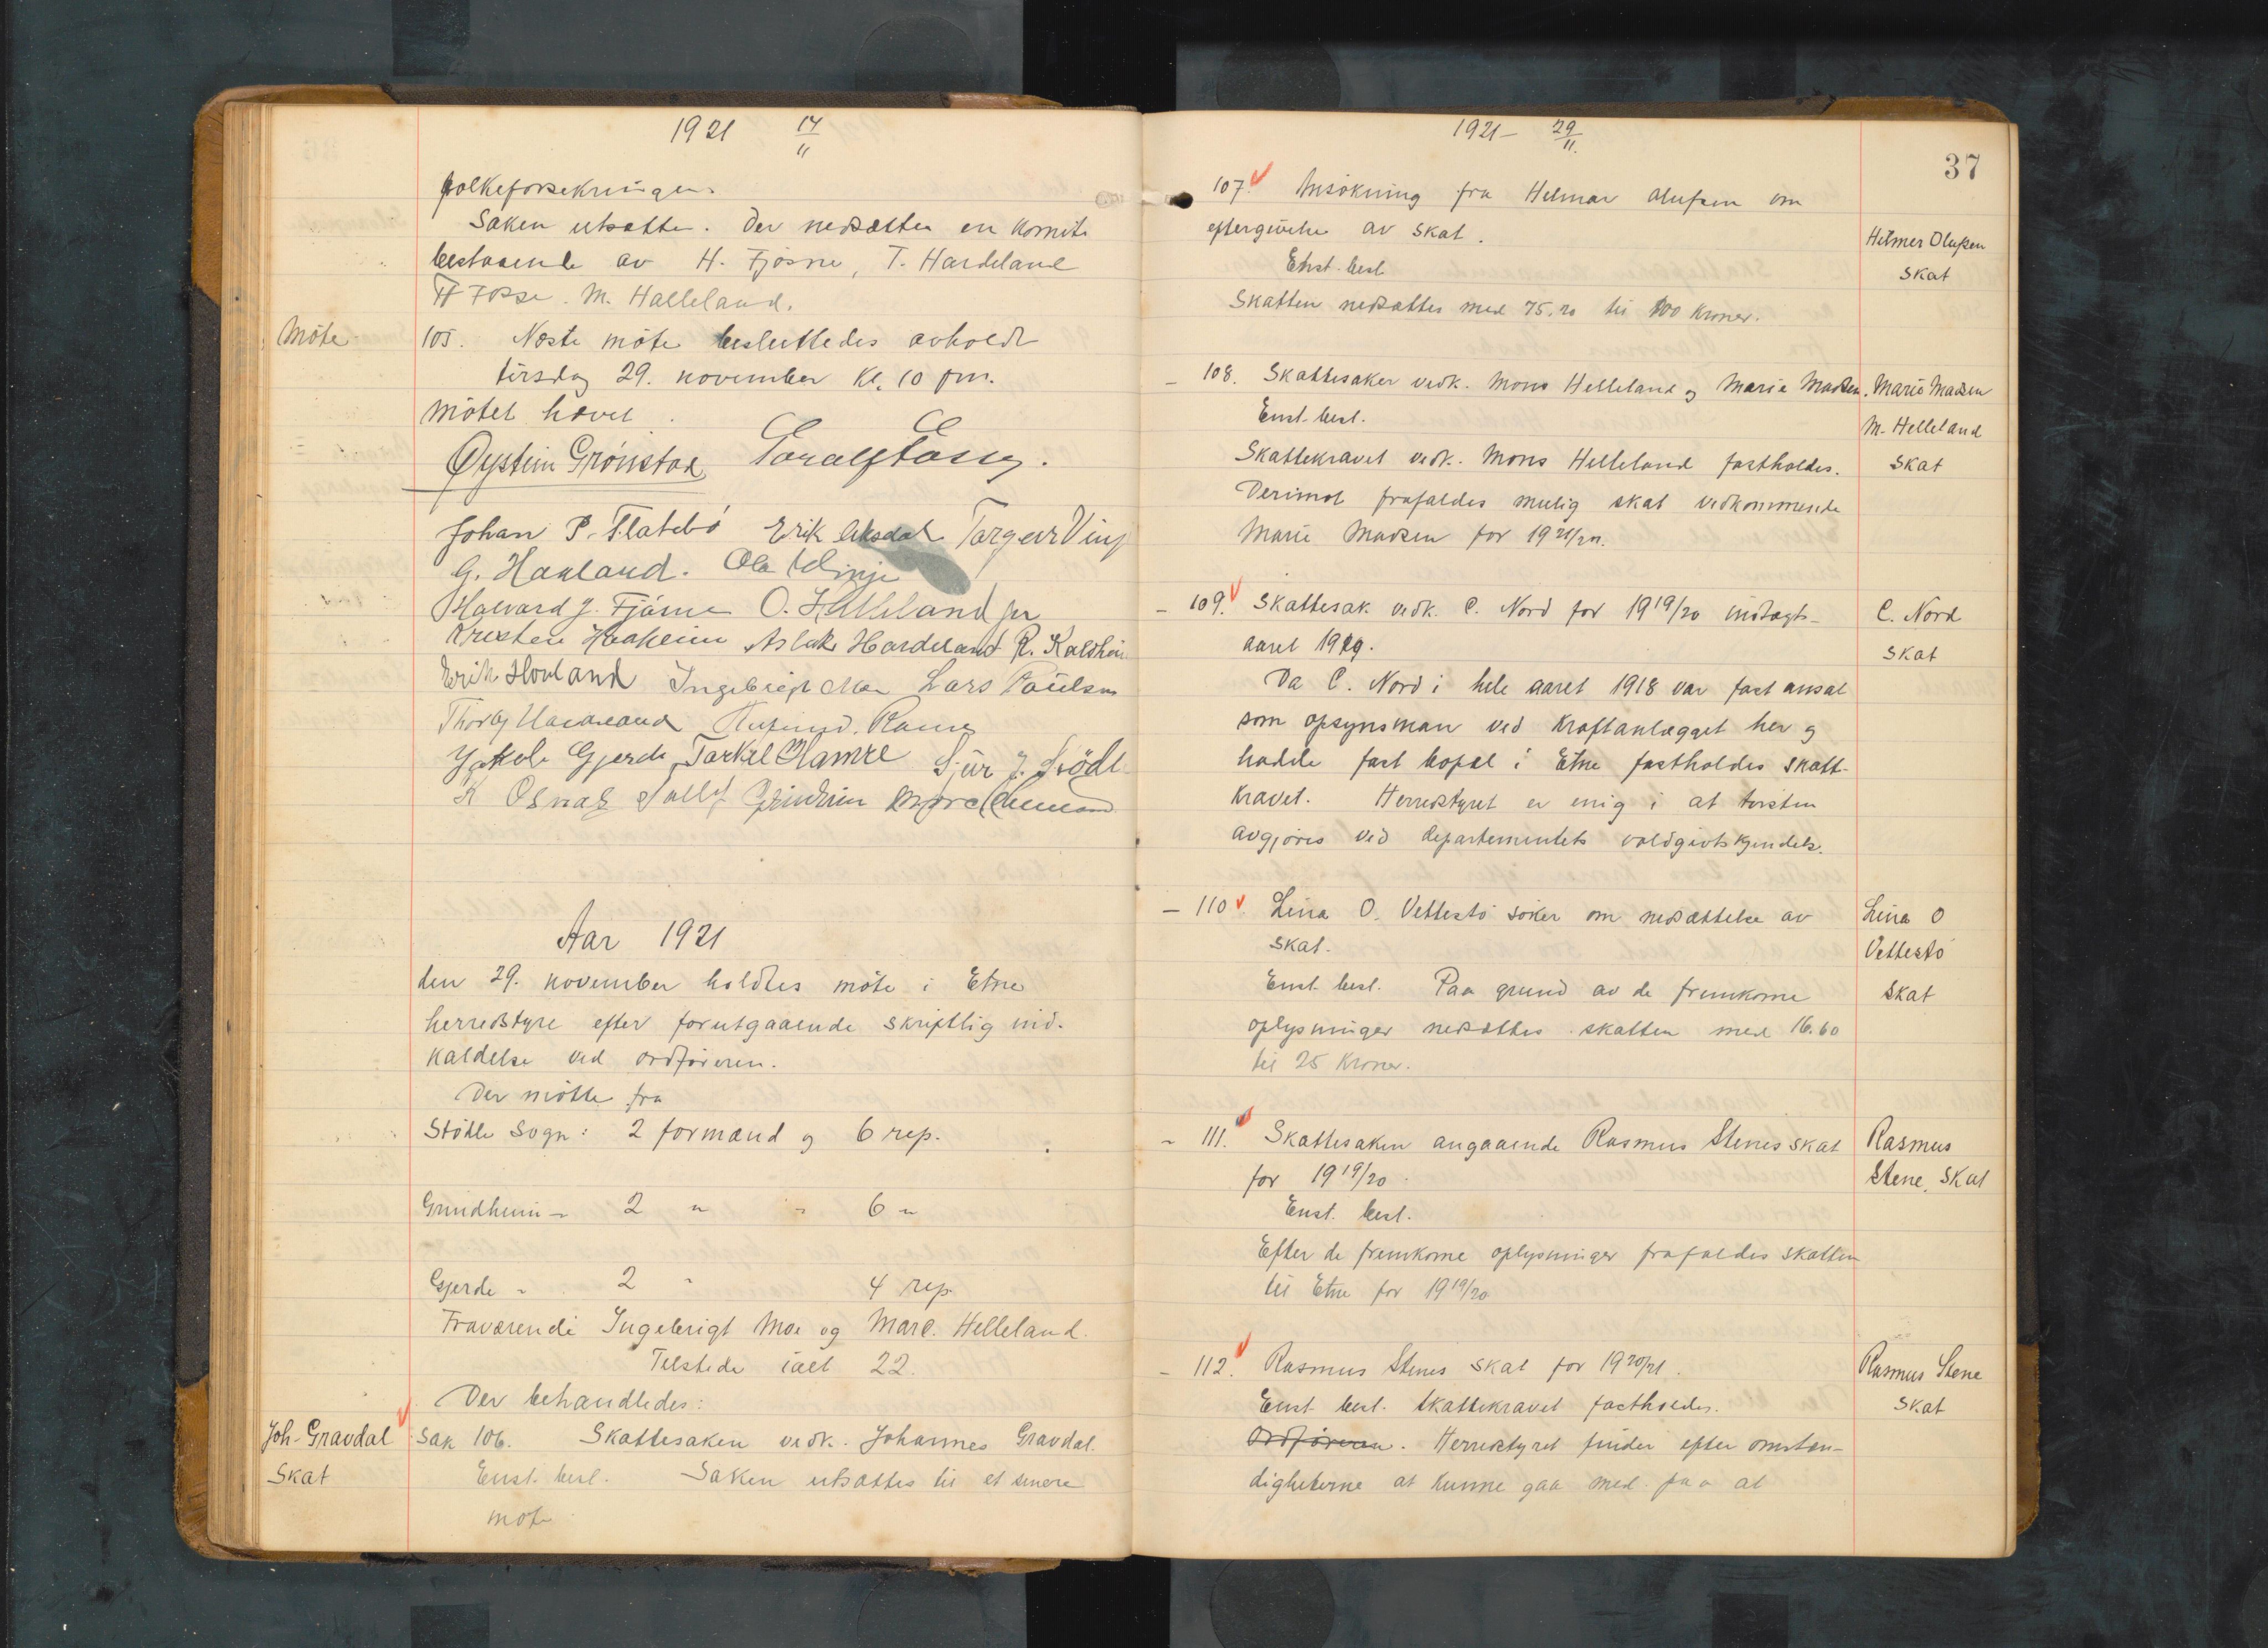 1921 14/11
folkeforsekringen.
Saken utsattes. Der nedsættes en komite
bestaaende av H. Fjösne, T. Hardeland
H Fosse. M. Halleland.
Möte
105. Næste möte besluttedes avholdt
tirsdag 29. november kl. 10 fm.
Mötet hævet.
Øystein Grönstad
Johan P. Flatebö Erik Aksdal Torgeir Vinje
G. Haaland. Ola Vinje
Halvard J. Fjösne O. Helleland jr
Kristen Haaheim Aslak Hardeland R. Kaldheim
Erik Hovland Ingebrigt Moe Lars Paulsen
Jakob Gjerde Torkel Hamre Sjur J. Stödle
K Osnes Grindheim
Aar 1921
den 29. november holdtes möte i Etne
herredstyre efter forutgaaende skriftlig ind-
kaldelse ved ordföreren.
Der mötte fra
Stödle Sogn: 2 formænd og 6 rep.
Grindheim - 2 " - 6 "
Gjerde - 2 " 4 rep.
Fraværende Ingebrigt Moe og Marc. Helleland.
Tilstede ialt 22.
Der behandledes:
Joh. Gravdal
Skat
Sak 106. Skattesaken vedk. Johannes Gravdal.
Enst. besl. Saken utsættes til et senere
möte
1921 - 29/11.
37
107. Ansökning fra Helmar Olufsen om
eftergivelse av skat.
Helmer Olufsen
Skat
Enst. besl.
Skatten nedsættes med 75,20 til 100 kroner.
- 108. Skattesaker vedk. Mons Helleland og Marie Madsen.
Marie Madsen
M. Helleland
Skat
Enst. besl.
Skattekravet vedk. Mons Helleland fastholdes.
Derimot frafaldes mulig skat vedkommende
Marie Madsen for 1921/22.
- 109. Skattesak vedk. C. Nord for 1919/20 indtægts-
aaret 1919.
C. Nord
Skat
Da C. Nord i hele aaret 1918 var fast ansat
som opsynsman ved kraftanlægget her og
hadde fast bopæl i Etne fastholdes skatt-
kravet. Herredstyret er enig i at tvisten
avgjöres ved departementets voldgivtskjendelse.
- 110. Lina O. Vettestö söker om nedsættelse av
skat.
Lina O
Vettestö
Skat
Enst. besl. Paa grund av de fremkomne
oplysninger nedsættes skatten med 16.60
til 25 kroner.
- 111. Skattesaken angaaende Rasmus Stenes skat
for 1919/20.
Rasmus
Stene, Skat
Enst. besl.
Efter de fremkomne oplysninger frafaldes skatten
til Etne for 1919/20
- 112. Rasmus Stenes skat for 1920/21.
Rasmus Stene
Skat
Enst. besl. Skattekravet fastholdes.
Ordföreren. Herredstyret finder efter omstæn-
digheterne at kunne gaa med paa at